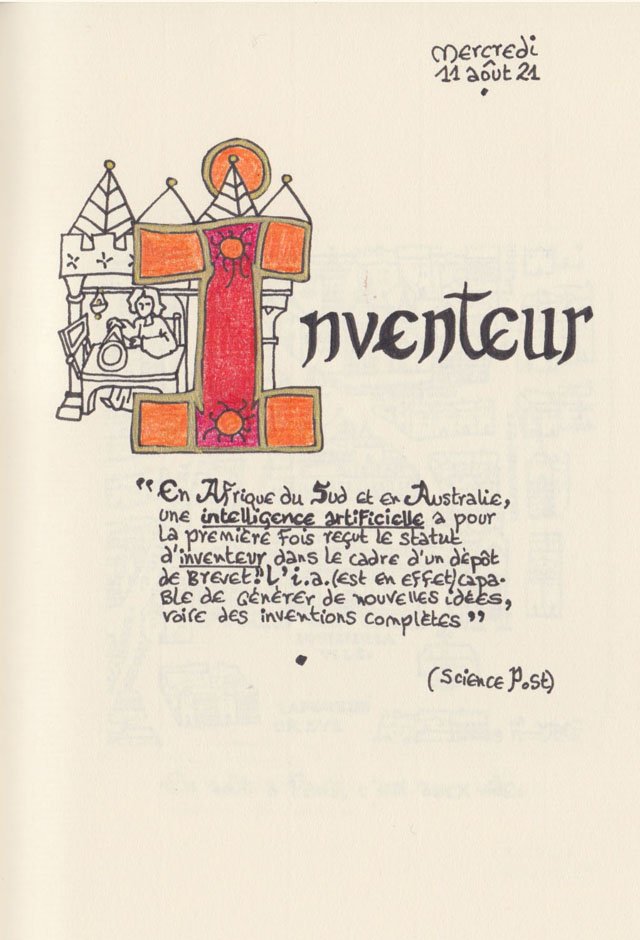 Mercredi
11 août 21
Inventeur
"En Afrique du Sud et en Australie,
une intelligence artificielle a pour
la première fois reçut le statut
d'inventeur dans le cadre d'un dépôt
de Brevet." L'i.a. (est en effet) capa-
ble de générer de nouvelles idées,
voire des inventions complètes"
(Science Post)